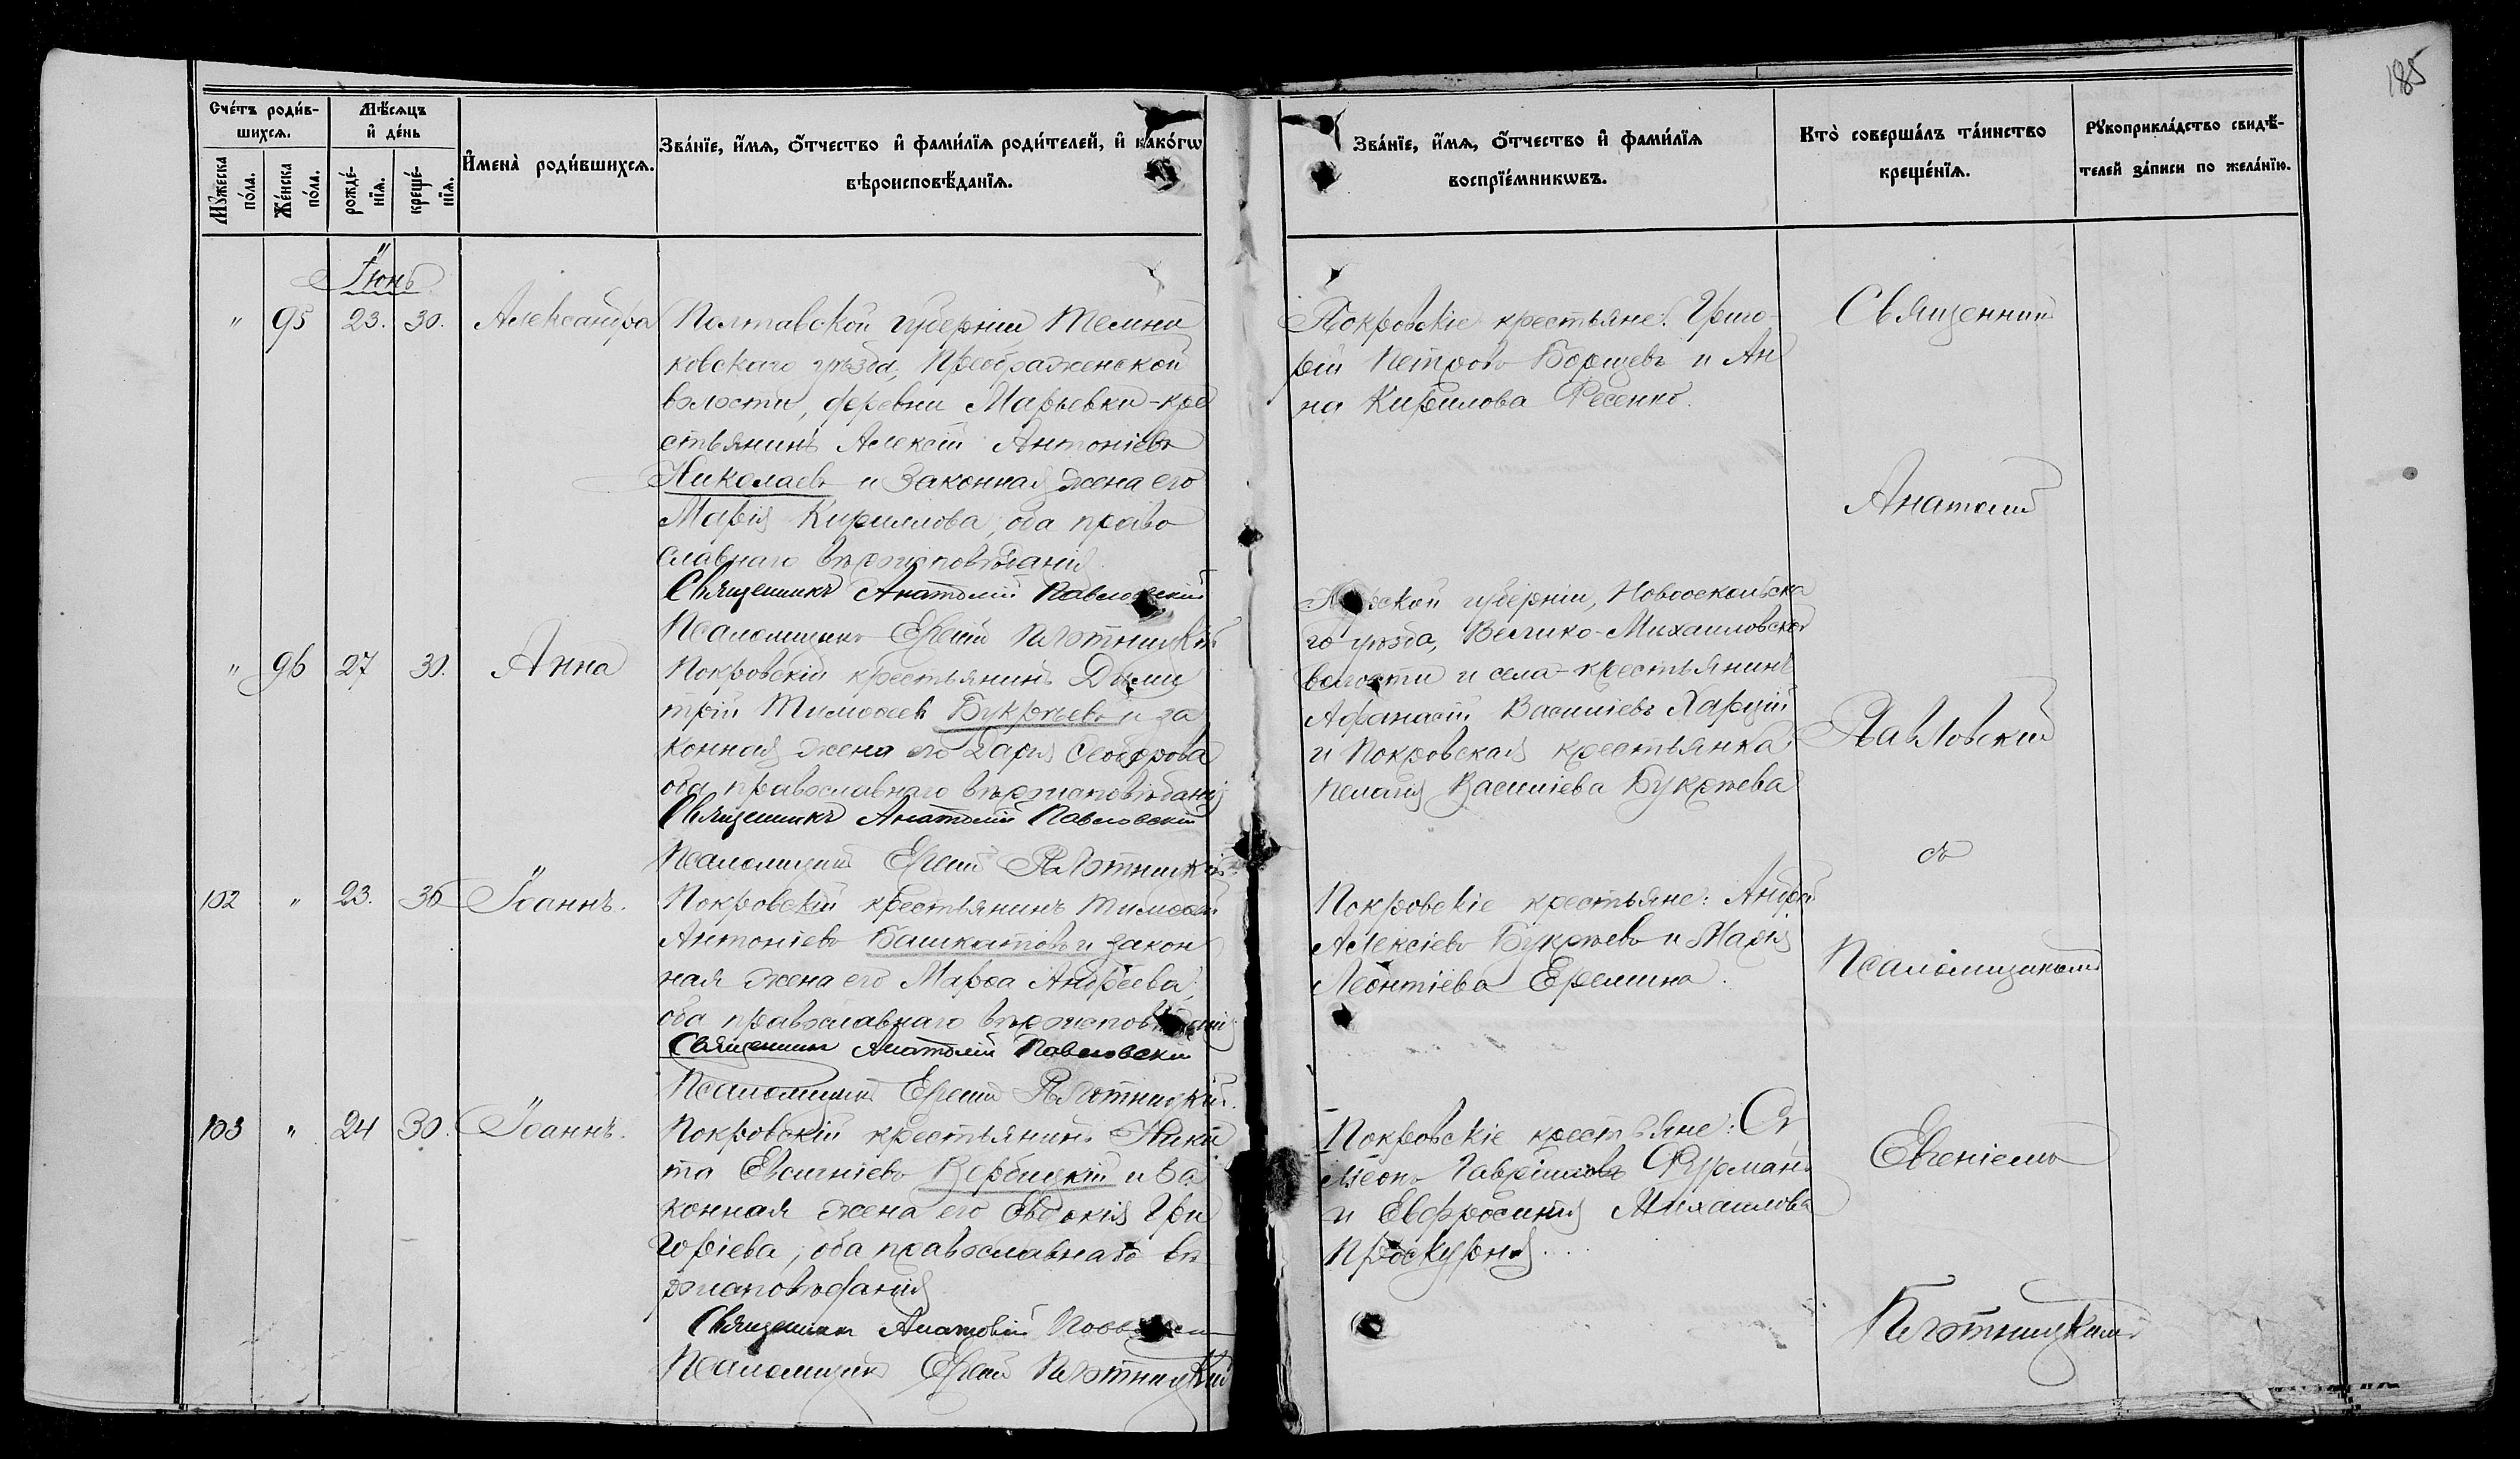 185
Счетъ родив-
шихся.
Мѣсяцъ
и день
Мужеска
пола.
Женска
пола.
рожде-
нія.
креще-
нія.
Имена родившихся.
Званіе, имя, отчество и фамилія родителей, и какогѡ
вѣроисповѣданія.
Званіе, имя, отчество и фамилія
воспріемникѡвъ.
Кто совершалъ таинство
крещенія.
Рукоприкладство свидѣ-
телей записи по желанію.
Іюнь
" 95 23. 30. Александра
Полтавской губерніи
ковскаго уѣзда, Преображенской
волости, деревни Марьевки - кре
стьянинъ Алексій Антоніевъ
Николаевъ и законная жена его
Марія Кириллова, оба право
славнаго вѣроисповѣданія.
Священникъ Анатолій Павловскій
Псаломщикъ Евгеній
Покровскіе крестьяне: Григо-
рій Петровъ Борщевъ и Ан
на Кирилова Фесенко.
" 96 27 30. Анна
Покровскій крестьянинъ Дими
трій Тимоѳеевъ Букрѣевъ и за
конная жена его Дарія Ѳеодорова
оба православнаго вѣроисповѣданія
Священникъ Анатолій Павловскій
Псаломщикъ Евгеній
губерніи, Новооскольска
го уѣзда, Велико-Михайловской
волости и села - крестьянинъ
Афанасій Василіевъ
и Покровская крестьянка
Пелагія Василіева Букрѣева
102 " 23. 30 Іоаннъ.
Покровскій крестьянинъ Тимоѳей
Антоніевъ Башкатовъ и закон
ная жена его Марѳа Андреева,
оба православнаго вѣроисповѣданія
Священникъ Анатолій Павловскій
Псаломщикъ Евгеній
Покровскіе крестьяне: Андрей
Алексіевъ Букрѣевъ и Марія
Леонтіева Еремина.
103 " 24 30. Іоаннъ.
Покровскій крестьянинъ Ники
та Евсигніевъ Вербицкій и за
конная жена его Евдокія Гри
горіева, оба православнаго вѣ
роисповѣданія
Священникъ Анатолій Павловскій
Псаломщикъ Евгеній
Покровскіе крестьяне: Си
меонъ Гавріиловъ Фурманъ
и Евфросинія Михаилова
Проскурня.
Священник
Анатолій
Павловскій
съ
Псаломщикомъ
Евгеніемъ